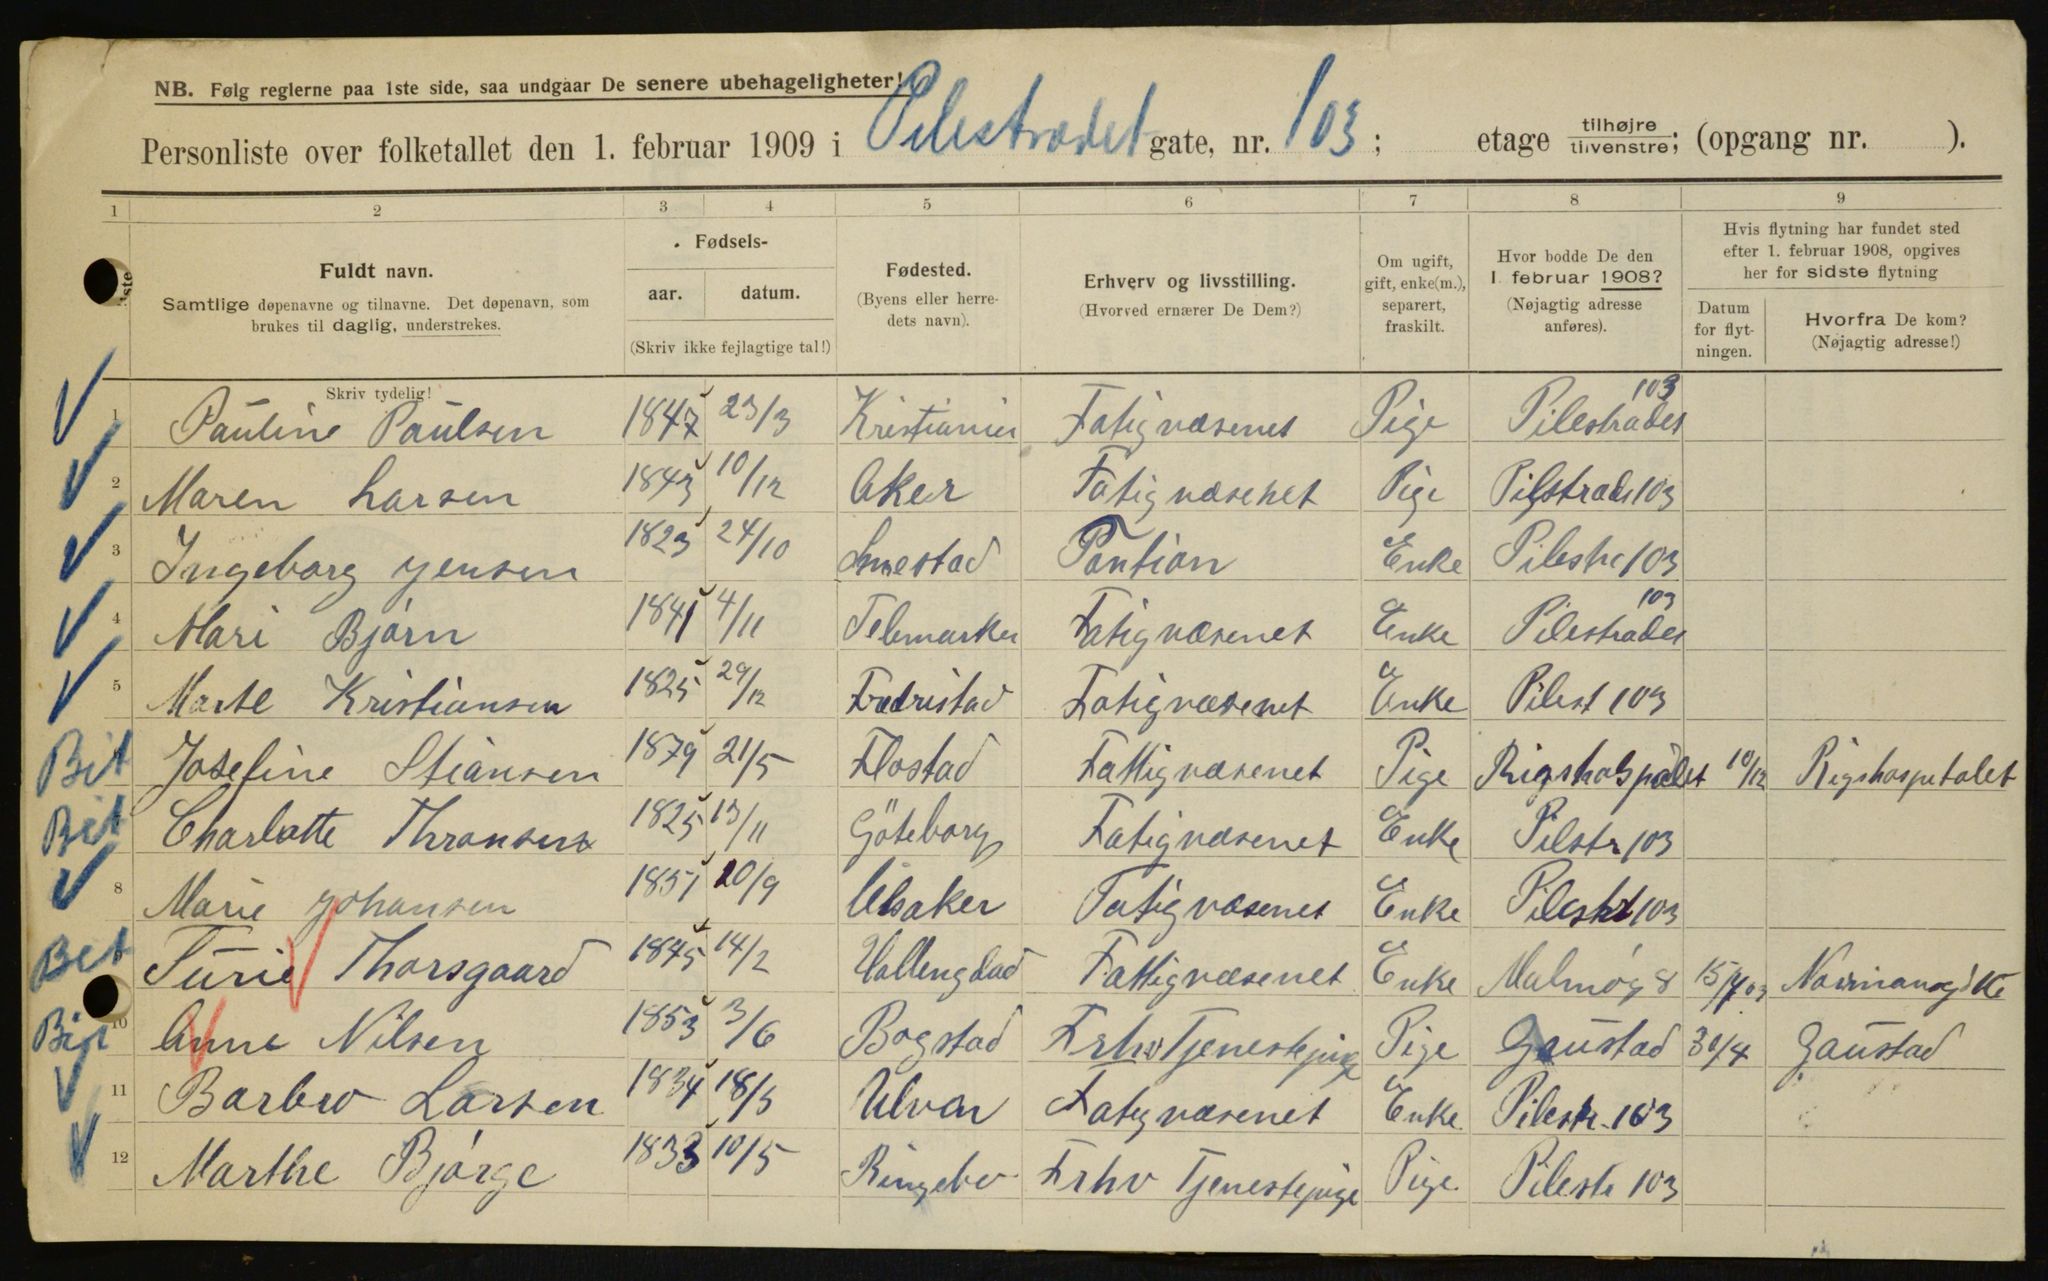 NB. Følg reglerne paa 1ste side, saa undgaar De senere ubehageligheter!
Personliste over folketallet den 1. februar 1909 i Pilestrædet gate, nr. 103; etage tilhøjre tilvenstre; (opgang nr. ).
1 2 3 4 5 6 7 8 9
Fuldt navn.
Samtlige døpenavne og tilnavne. Det døpenavn, som
brukes til daglig, understrekes.
Skriv tydelig!
Fødsels-
aar. datum.
(Skriv ikke fejlagtige tal!)
Fødested.
(Byens eller herre-
dets navn).
Erhverv og livsstilling.
(Hvorved ernærer De Dem?)
Om ugift,
gift, enke(m.),
separert,
fraskilt.
Hvor bodde De den
1. februar 1908?
(Nøjagtig adresse
anføres).
Hvis flytning har fundet sted
efter 1. februar 1908, opgives
her for sidste flytning
Datum
for flyt-
ningen.
Hvorfra De kom?
(Nøjagtig adresse!)
1 Pauline Paulsen 1847 23/3 Kristiania Fatigvæsenet Pige Pilestrædet 103
2 Maren Larsen 1843 10/12 Aker Fatigvæsenet Pige Pilstræde 103
3 Ingeborg Jensen 1823 24/10 Smestad Pantion Enke Pilestr 103
4 Mari Bjørn 1841 4/11 Telemarken Fatigvæsenet Enke Pilestrædet 103
5 Marte Kristiansen 1825 29/12 Fredristad Fatigvæsenet Enke Pilest 103
Bit Josefine Stiansen 1879 21/5 Flostad Fattigvæsenet Pige Rigshospitalet 10/12 Rigshospitalet
Bit Charlotte Thransen 1825 13/11 Göteborg Fatigvæsenet Enke Pilstr 103
8 Marie Johansen 1851 20/9 Ulsaker Fatigvæsenet Enke Pilestr 103
Bit Turie Thorsgaard 1845 14/2 Hallengdad Fattigvæsenet Enke Malmøg 8
10 Bit Anne Nilsen 1853 3/6 Bogstad Erhv Tjenestepige Pige Gaustad 30/4 Gaustad
11 Barbro Larsen 1834 18/3 Ulven Fatigvæsenet Enke Pilestr. 103
12 Marthe Bjørge 1833 10/5 Ringebo Erhv Tjenestepige Pige Pilestr 103